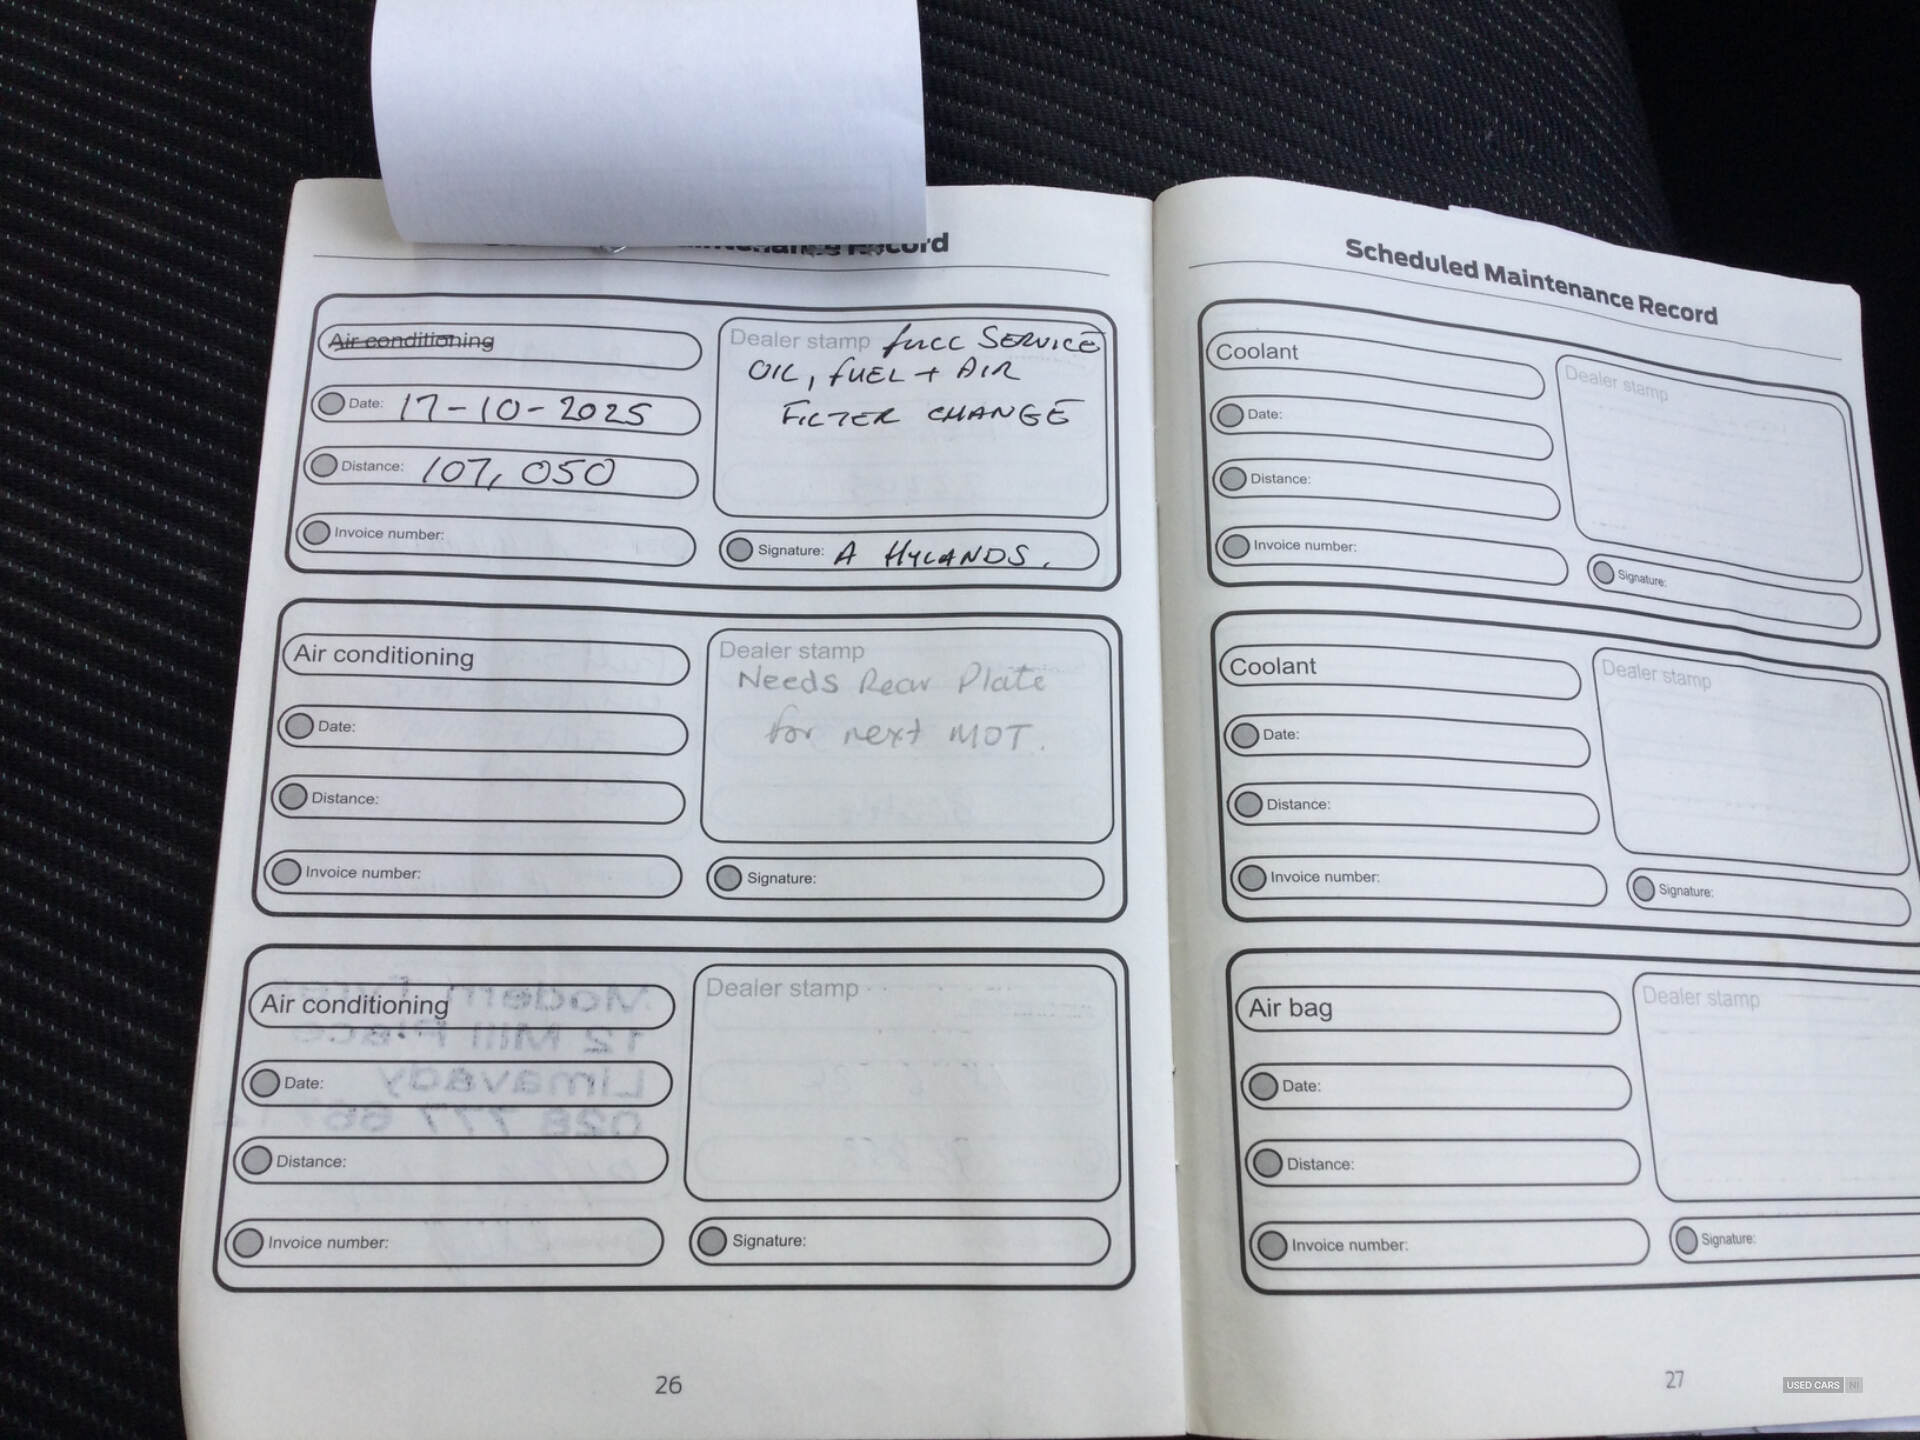 Record
Air conditioning
Date: 17-10-2025
Distance: 107,050
Invoice number:
Dealer stamp FULL SERVICE
OIL, FUEL + AIR
FILTER CHANGE
Signature: A HYLANDS.
Air conditioning
Date:
Distance:
Invoice number:
Dealer stamp
Needs Rear Plate
for next MOT.
Signature:
Air conditioning
Date:
Distance:
Invoice number:
Dealer stamp
Signature:
26
Scheduled Maintenance Record
Coolant
Date:
Distance:
Invoice number:
Dealer stamp
Signature:
Coolant
Date:
Distance:
Invoice number:
Dealer stamp
Signature:
Air bag
Date:
Distance:
Invoice number:
Dealer stamp
Signature:
27
USED CARS NI